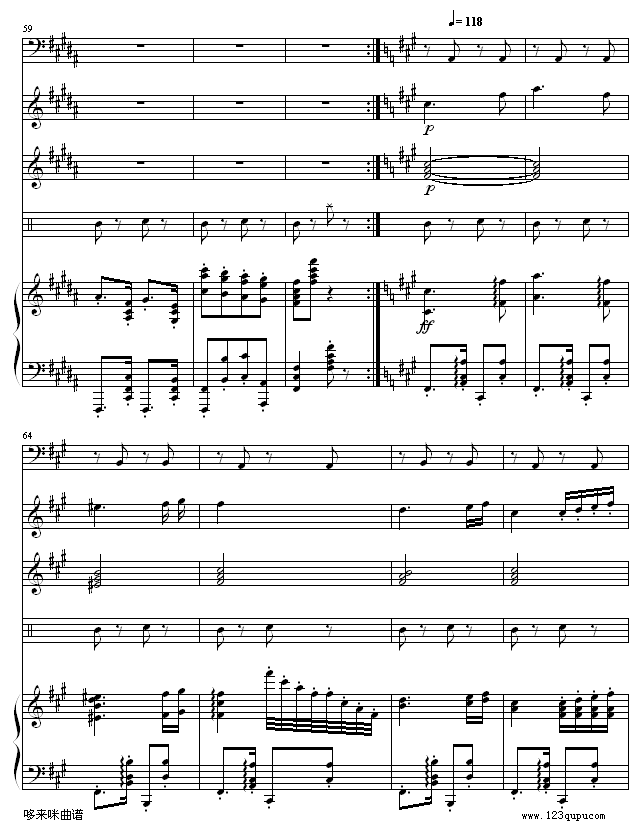 59
♩= 118
p
p
ff
64
哆来咪曲谱
www.123qupu.com